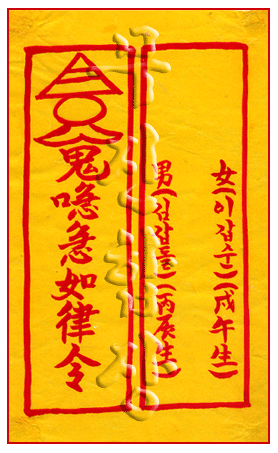 女(이갑순)(戊午生)
男(심갑돌)(丙辰生)
鬼喼急如律令